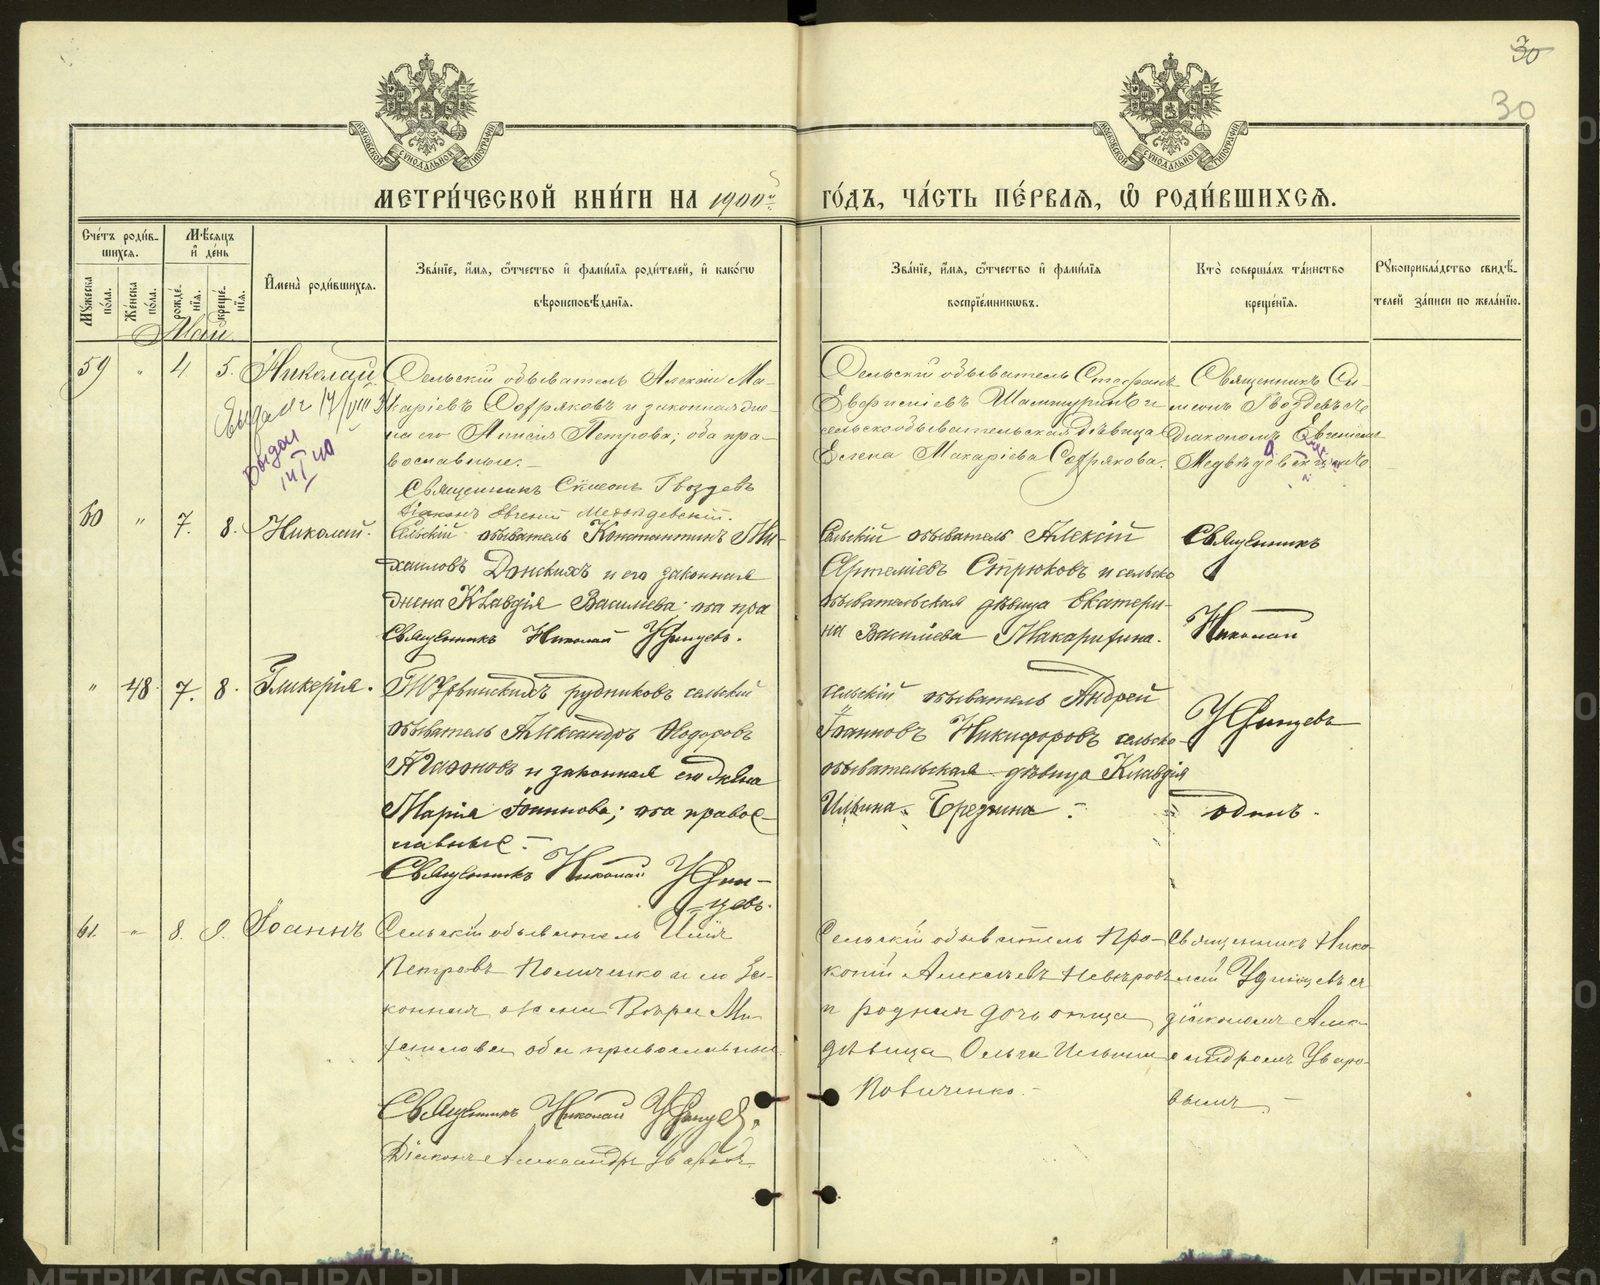 30
30
МОСКОВСКОЙ СѴНОДАЛЬНОЙ ТИПОГРАФІИ
МОСКОВСКОЙ СѴНОДАЛЬНОЙ ТИПОГРАФІИ
МЕТРИ́ЧЕСКОЙ КНИ́ГИ НА 1900й
ГО́ДЪ, ЧА́СТЬ ПЕ́РВАѦ, Ѽ РОДИ́ВШИХСѦ.
Сче́тъ роди́в-
шихсѧ.
Мꙋ́жеска по́ла.
Же́нска по́ла.
Мѣ́сѧцъ и҆ де́нь
рожде́-
нїѧ.
креще́-
нїѧ.
И҆мена̀ роди́вшихсѧ.
Зва́нїе, и҆́мѧ, ѻ҆́тчество и҆ фами́лїѧ роди́телей, и҆ како́гѡ
вѣроисповѣ́данїѧ.
Зва́нїе, и҆́мѧ, ѻ҆́тчество и҆ фами́лїѧ
воспрїе́мникѡвъ.
Кто̀ соверша́лъ та́инство
креще́нїѧ.
Рꙋкоприкла́дство свидѣ́-
телей за́писи по жела́нїю.
Май
59 " 4 5. Николай
Выдан 14/I 40
Сельскій обыватель Алексій Ма-
каріевъ Софряковъ и законная же-
на его Анисія Петрова; оба пра-
вославные.-
Священникъ Сѵмеонъ Гвоздевъ
Діаконъ Евгеній Медвѣдевскій.
Сельскій обыватель Стефанъ
Евфиміевъ Шампуринъ и
сельскообывательская дѣвица
Елена Макаріева Софрякова.
Священникъ Си-
меонъ Гвоздевъ съ
діакономъ Евгеніемъ
60 " 7. 8. Николай.
Сельскій обыватель Константинъ Ми-
хаиловъ Донскихъ и его законная
жена Клавдія Василіева; оба пра
Священникъ Николай Удинцевъ.
Сельскій обыватель Алексій
Артеміевъ Стрюковъ и сельско
обывательская дѣвица Екатери-
на Василіева Макарихина.
Священникъ
Николай
Удинцевъ
" 48. 7. 8. Гликерія.
Турьинскихъ рудниковъ сельскій
обыватель Александръ Ѳедоровъ
Агафоновъ и законная его жена
Марія Іоаннова; оба правос-
лавные.-
Священникъ Николай Удин-
цевъ.
сельскій обыватель Андрей
Іоанновъ Никифоровъ сельско-
обывательская дѣвица Клавдія
Ильина Бредгина.-
одинъ.
61. " 8. 9. Іоаннъ
Сельскій обыватель Илія
Петровъ Поличенко и его за-
конная жена Вѣра Ми-
хаилова оба православные.
Священникъ Николай Удинцевъ.
Діаконъ Александръ Уваровъ
Сельскій обыватель Про-
копій Алексѣевъ Невѣровъ
и родная дочь отца
дѣвица Ольга Ильина
Поличенко.-
Священникъ Нико-
лай Удинцевъ съ
діакономъ Алек-
сандромъ Уваро-
вымъ.-
METRIKI.GASO-URAL.RU